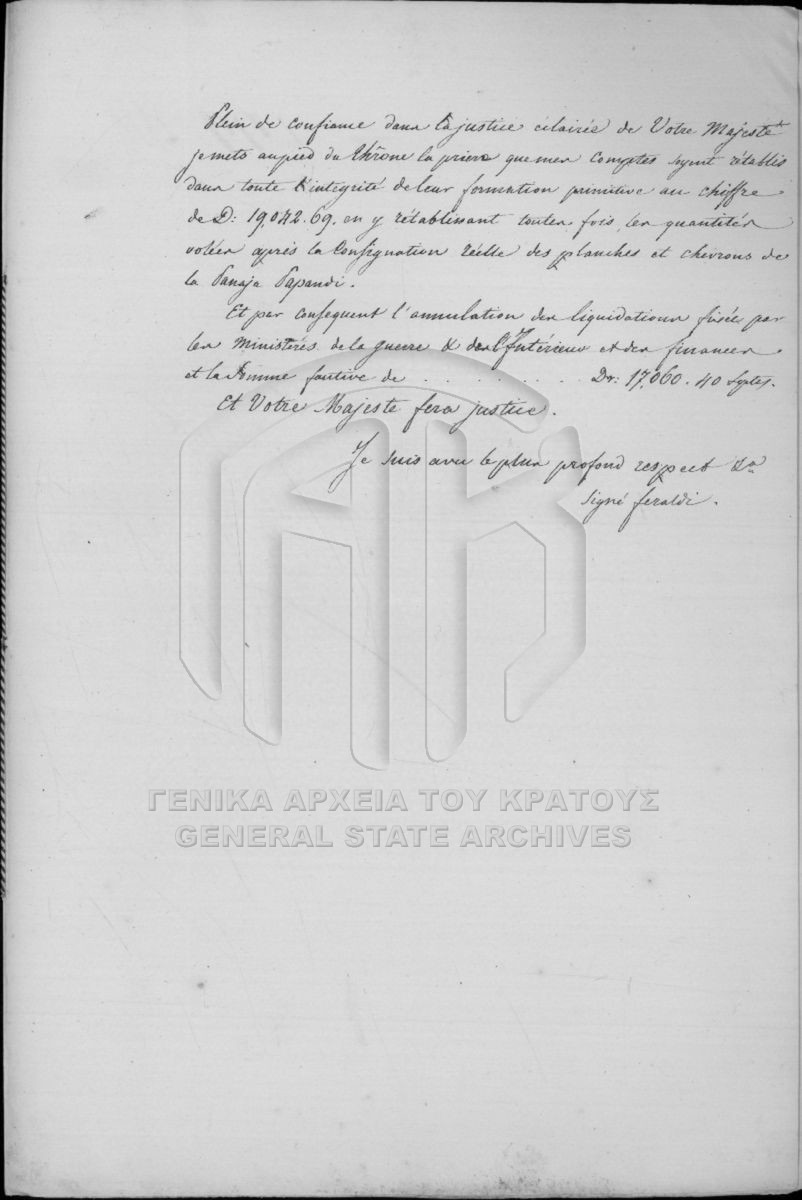 Plein de confiance dans la justice éclairée de Votre Majesté
je mets au pied du thrône la prière que mes comptes soyent rétablis
dans toute l'intégrité de leur formation primitive au chiffre
de D: 19,042.69. en y rétablissant toutes fois les quantités
volées après la Consignation réelle des planches et chevrons de
la Panaja Papandi.
Et par consequent l'annulation des liquidations fixées par
les Ministérés de la guerre & de l'Intérieur et des finances
et la somme fautive de . . . . . . . . Dr: 17,060. 40 Leptes.
Et Votre Majeste fera justice.
Je suis avec le plus profond respect &a
Signé feraldi.
ΓΕΝΙΚΑ ΑΡΧΕΙΑ ΤΟΥ ΚΡΑΤΟΥΣ
GENERAL STATE ARCHIVES